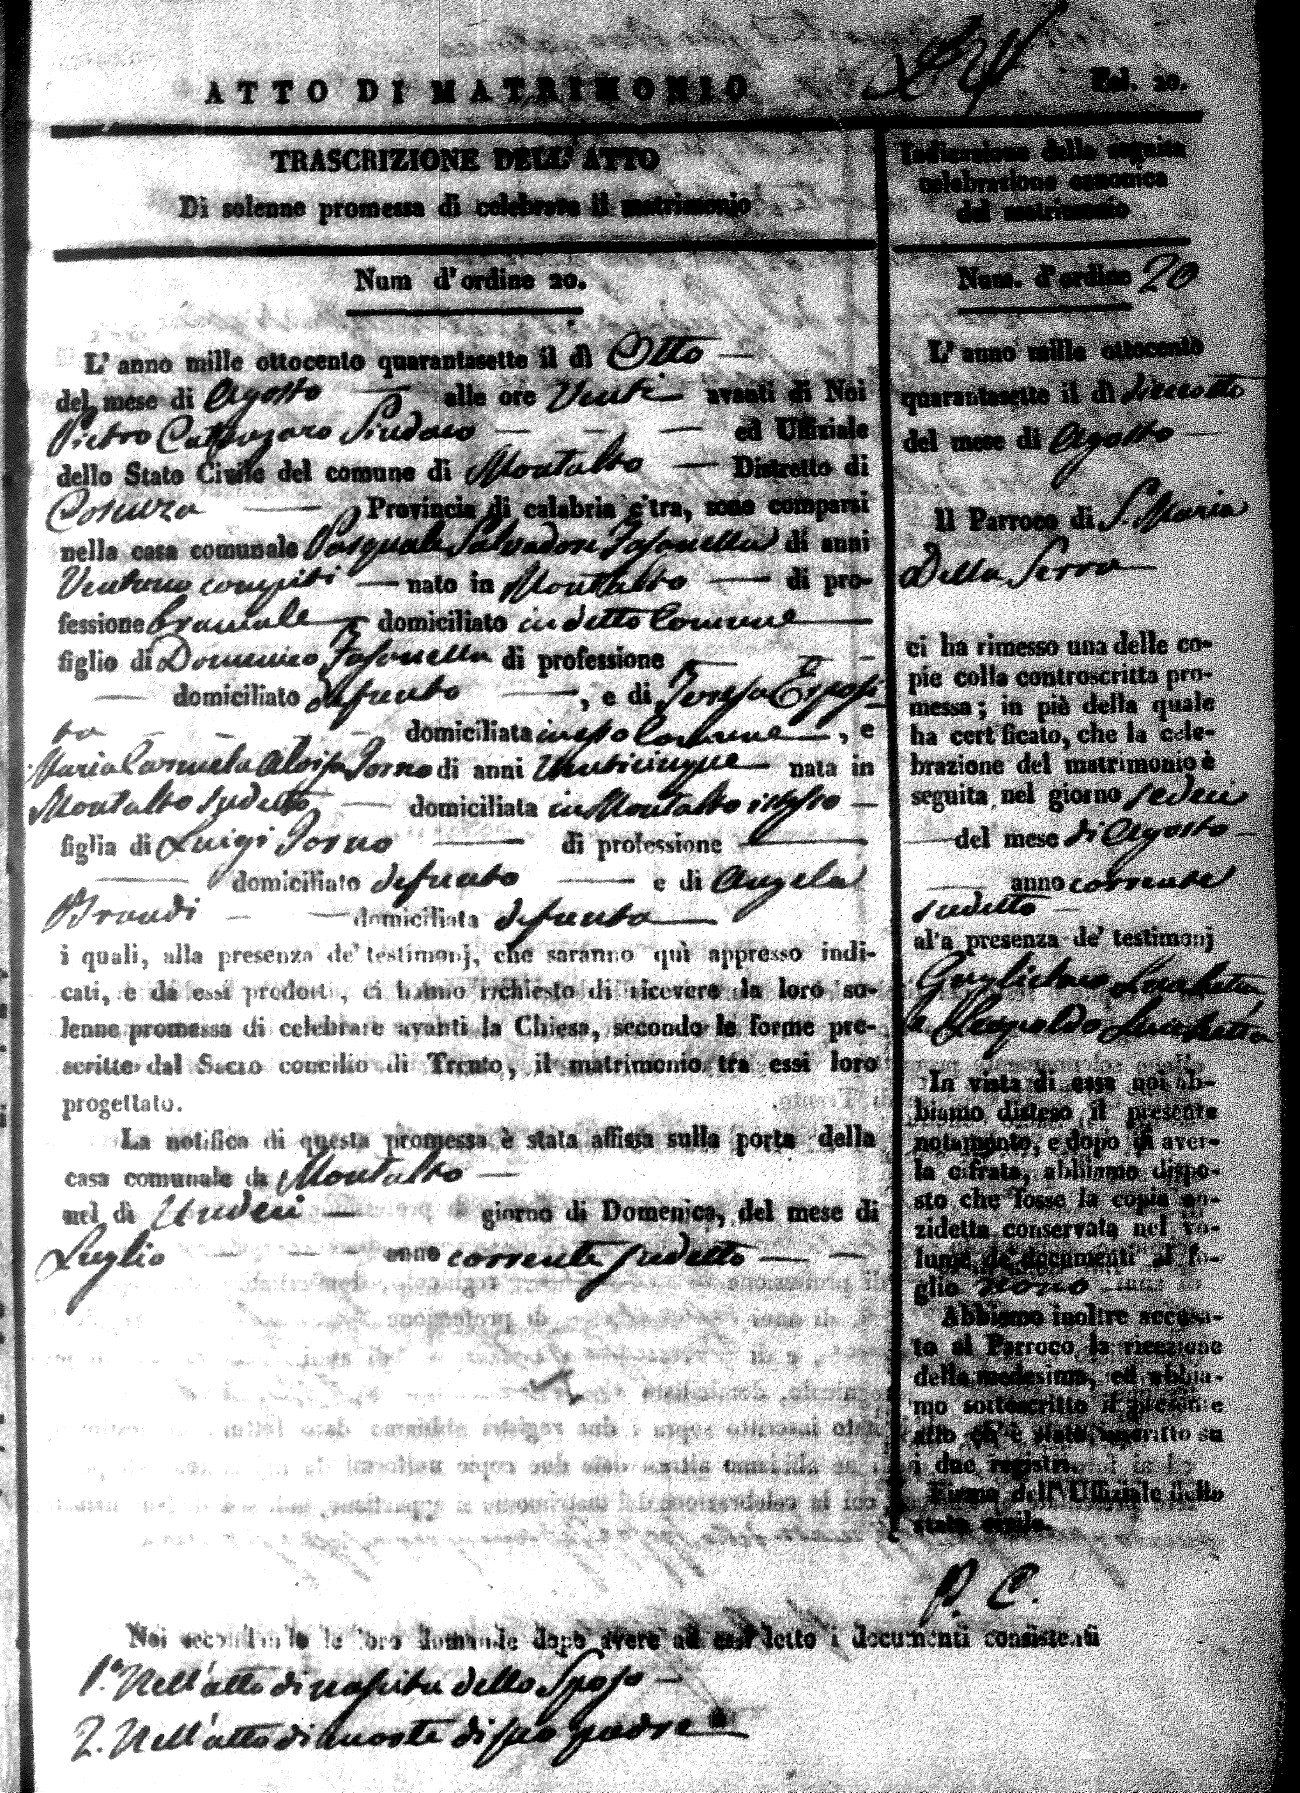 ATTO DI MATRIMONIO
Fol. 20.
TRASCRIZIONE DELL' ATTO
Di solenne promessa di celebrare il matrimonio
Num d'ordine 20.
L' anno mille ottocento quarantasette il dì Otto
del mese di Agosto alle ore Venti avanti di Noi
Pietro Catanzaro Sindaco ed Uffiziale
dello Stato Civile del comune di Montalto Distretto di
Cosenza Provincia di calabria c'tra, sono comparsi
nella casa comunale Pasquale Salvadore Fasonella di anni
Ventuno compiti nato in Montalto di pro-
fessione bracciale domiciliato in detto Comune
figlio di Domenico Fasonella di professione
domiciliato defunto , e di Teresa Esposi
to domiciliata in esso Comune , e
Maria Carmela Aloisa Iorno di anni Venticinque nata in
Montalto sudetto domiciliata in Montalto istesso
figlia di Luigi Iorno di professione
domiciliato defunto e di Angela
Brandi domiciliata defunta
i quali, alla presenza de' testimonj, che saranno quì appresso indi-
cati, e da essi prodotti, ci hanno richiesto di ricevere la loro so-
lenne promessa di celebrare avanti la Chiesa, secondo le forme pre-
scritte dal Sacro concilio di Trento, il matrimonio tra essi loro
progettato.
La notifica di questa promessa è stata affissa sulla porta della
casa comunale di Montalto
nel dì Undeci giorno di Domenica, del mese di
Luglio anno corrente sudetto
Indicazione della seguita
celebrazione canonica
del matrimonio
Num. d'ordine 20
L' anno mille ottocento
quarantasette il dì dieciotto
del mese di Agosto
Il Parroco di S. Maria
Della Serra
ci ha rimesso una delle co-
pie colla controscritta pro-
messa; in piè della quale
ha cert ficato, che la cele-
brazione del matrimonio è
seguita nel giorno sedeci
del mese di Agosto
anno corrente
sudetto
al'a presenza de' testimonj
Guglielmo Lucchetta
e Leopoldo Lucchetta
In vista di essa noi ab-
biamo disteso il presente
notamento, e dopo di aver-
la cifrata, abbiamo dispo-
sto che fosse la copia an-
zidetta conservata nel vo-
lume de' documenti al fo-
glio nono
Abbiamo inoltre accusa-
to al Parroco la ricezione
della medesima, ed abbia-
mo sottoscritto il presente
atto ch' è stato inscritto su
i due registri.
Firma dell' Uffiziale dello
stato civile.
P. C.
Noi secondando le loro domande dopo avere ad essi letto i documenti consistenti
1.° Nell'atto di nascita dello Sposo
2. Nell'atto di morte di suo padre